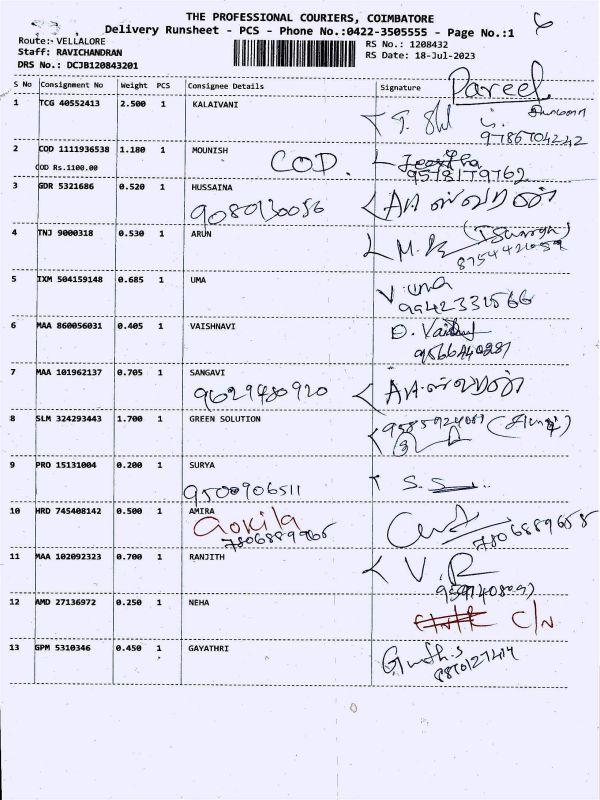 THE PROFESSIONAL COURIERS, COIMBATORE
Delivery Runsheet - PCS - Phone No.:0422-3505555 - Page No.:1
Route:- VELLALORE
Staff: RAVICHANDRAN
DRS No.: DCJB120843201
RS No.: 1208432
RS Date: 18-Jul-2023
S No Consignment No Weight PCS Consignee Details Signature
1 TCG 40552413 2.500 1 KALAIVANI
9786704242
2 COD 1111936538 1.180 1 MOUNISH COD.
COD Rs.1100.00 9578179762
3 GDR 5321686 0.520 1 HUSSAINA
9080130056
4 TNJ 9000318 0.530 1 ARUN
5 IXM 504159148 0.685 1 UMA V. uma
9942331566
6 MAA 860056031 0.405 1 VAISHNAVI
7 MAA 101962137 0.705 1 SANGAVI
9629480920
8 SLM 324293443 1.700 1 GREEN SOLUTION
9 PRO 15131004 0.200 1 SURYA S.S
9500906511
10 HRD 745408142 0.500 1 AMIRA
Gokila
7806889965
11 MAA 102092323 0.700 1 RANJITH V.R
12 AMD 27136972 0.250 1 NEHA
C/N
13 GPM 5310346 0.450 1 GAYATHRI